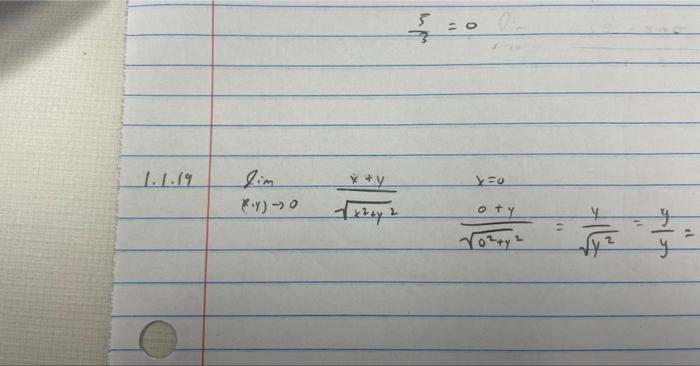 5/3 = 0
1.1.19 lim (x,y)→0 x+y/√x²+y² x=0
0+y/√0²+y² = y/√y² = y/y =